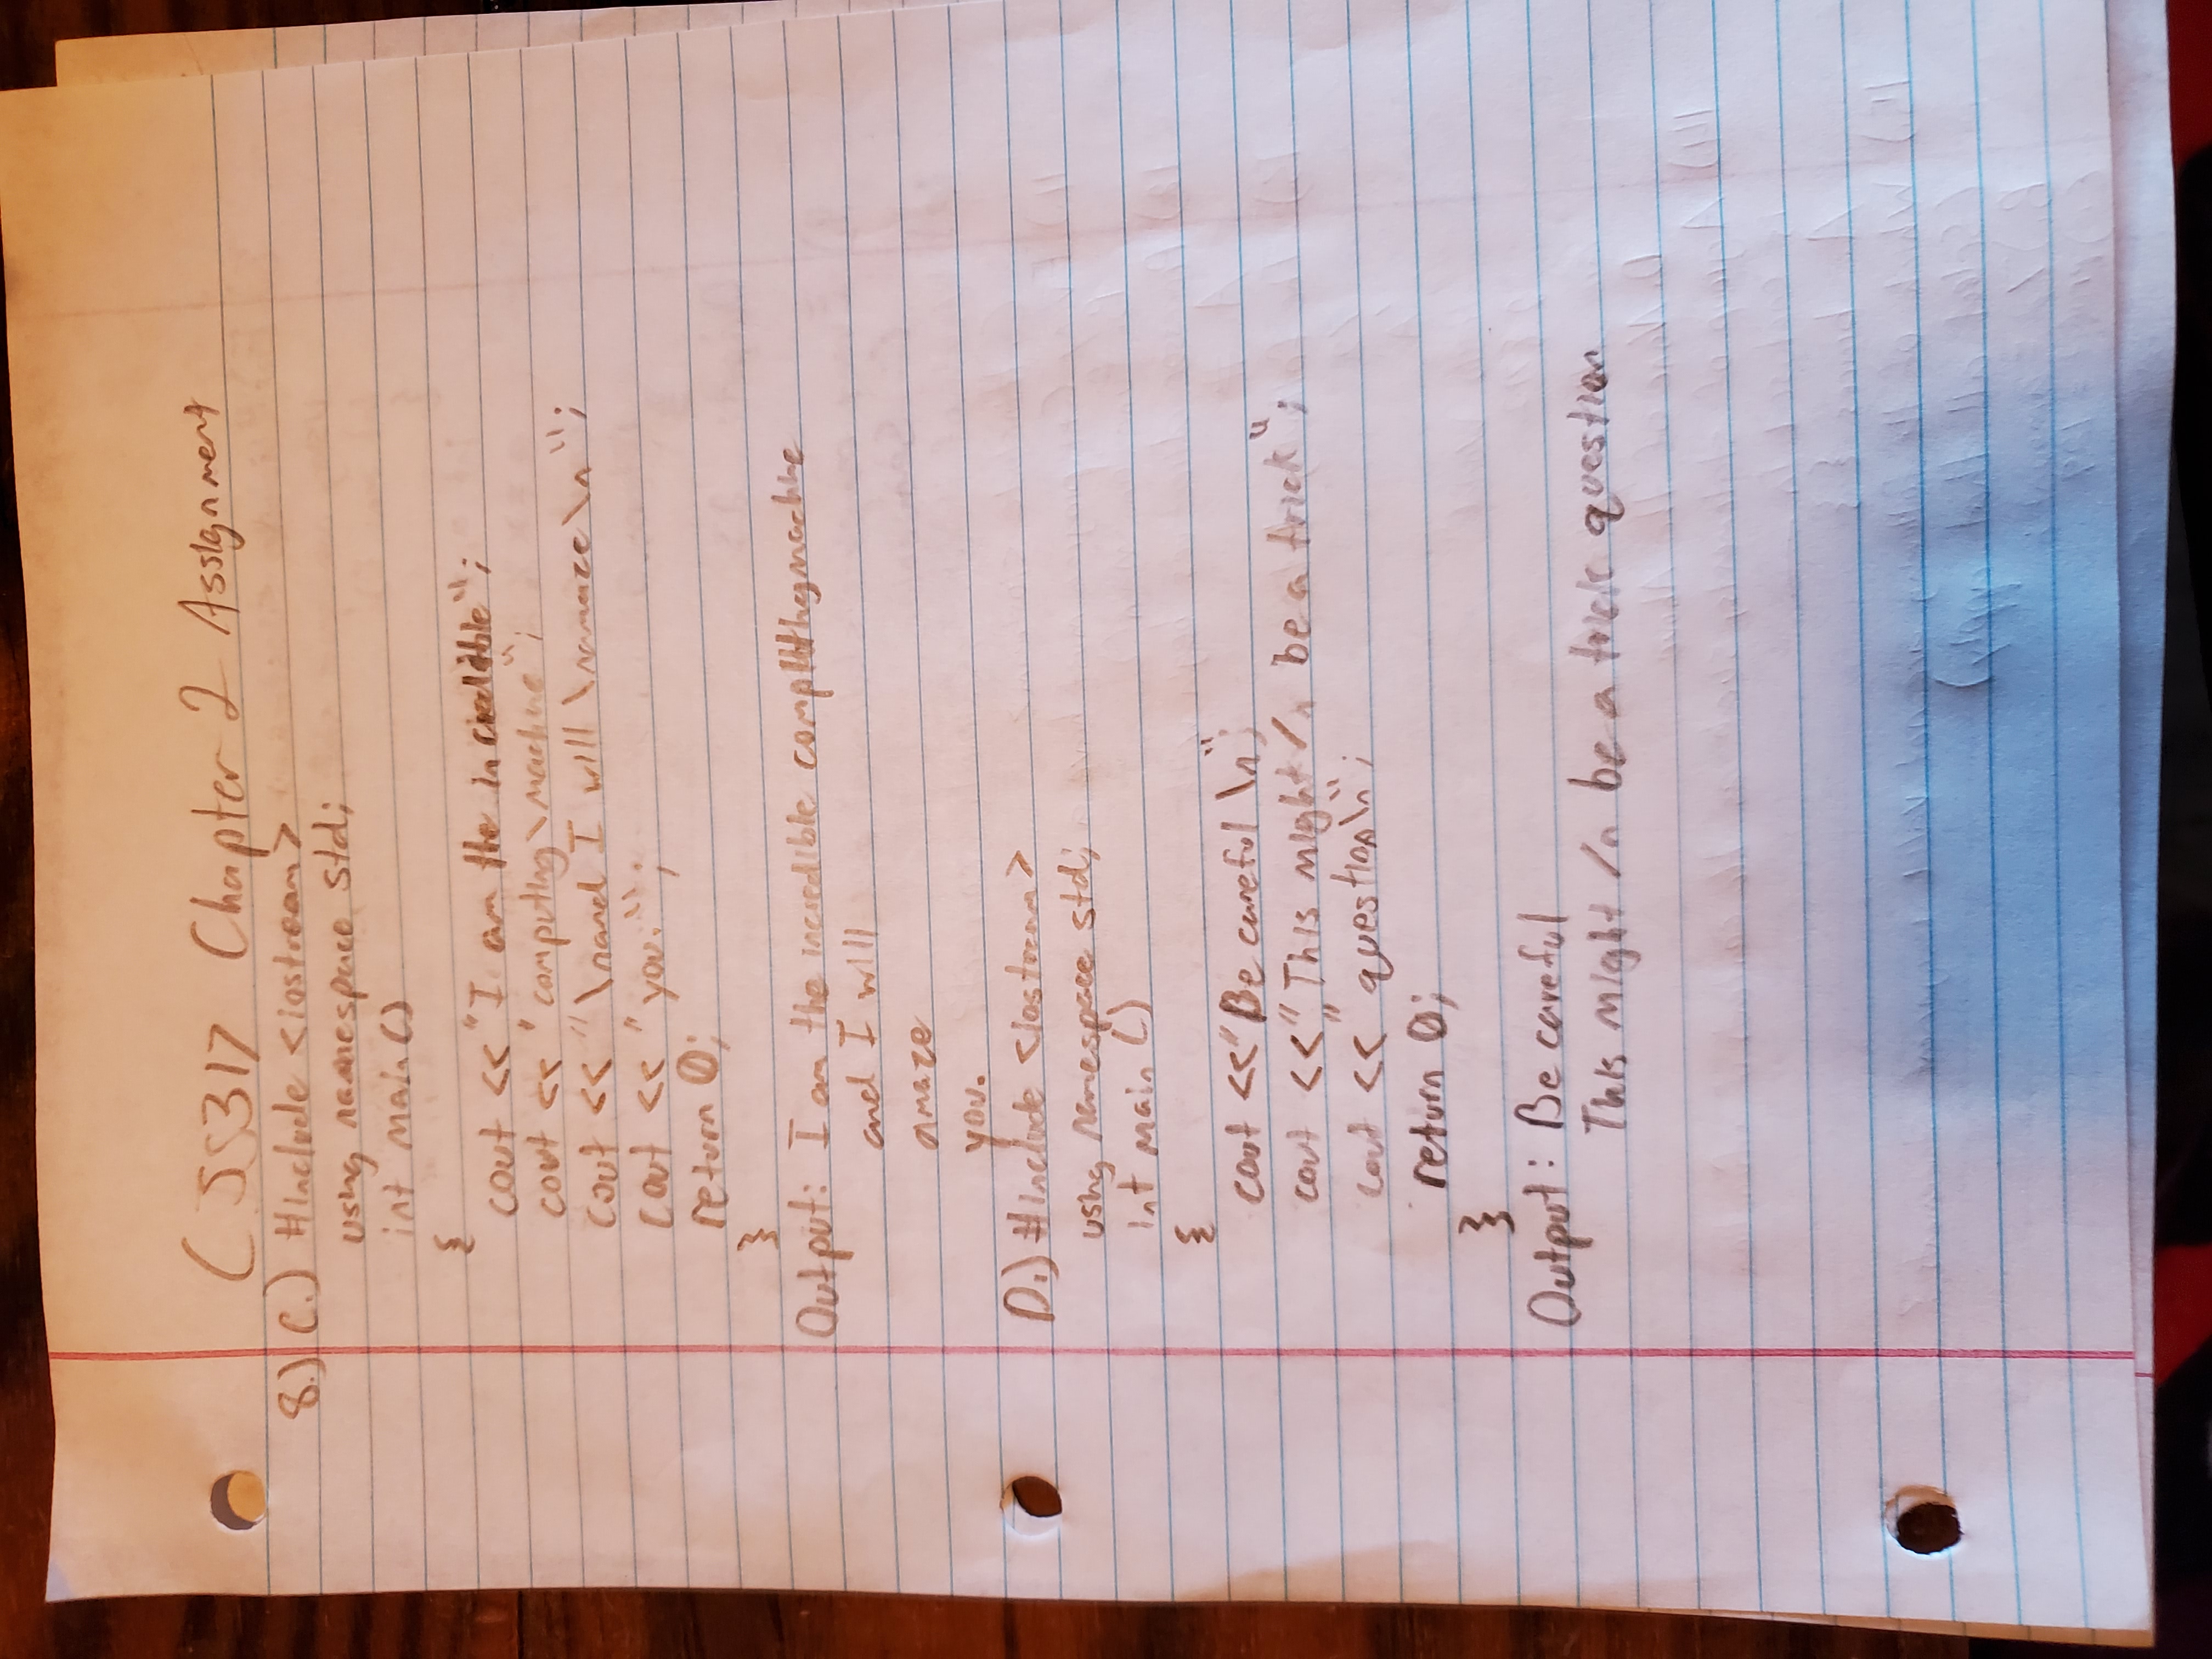 CJSS317 Chapter 2 Assignment
8.) C.) #include <iostream>
using namespace std;
int main()
{
cout << "I am the incredible";
cout << "computing\machine";
cout << "\nand I will \namaze\n";
cout << "you.";
return 0;
}
Output: I am the incredible computingmachine
and I will
amaze
you.
D.) #include <iostream>
using namespace std;
int main()
{
cout << "Be careful \n";
cout << "This might /n be a trick";
cout << "question\n";
return 0;
}
Output: Be careful
This might /n be a trick question